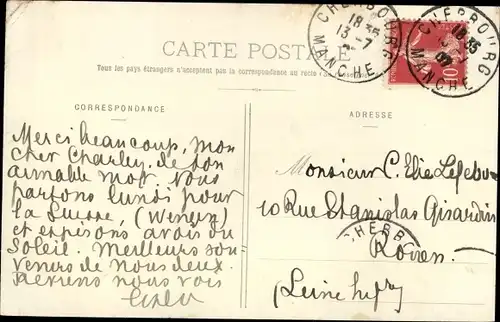 CHERBOURG
18 35
13 - 7
MANCHE
CHERBOURG
18 35
MANCHE
10
CARTE POSTALE
Tous les pays étrangers n'acceptent pas la correspondance au recto
CORRESPONDANCE
ADRESSE
Merci beaucoup, mon
cher Charley, de ton
aimable mot. Nous
partons lundi pour
la Suisse, (Wengen)
et espérons avoir du
Soleil. Meilleurs sou-
venirs de nous deux.
nous vois
Monsieur C. Elie Lefebvre
10 Rue Stanislas Girardin
CHERB
Rouen
(Seine Infre)